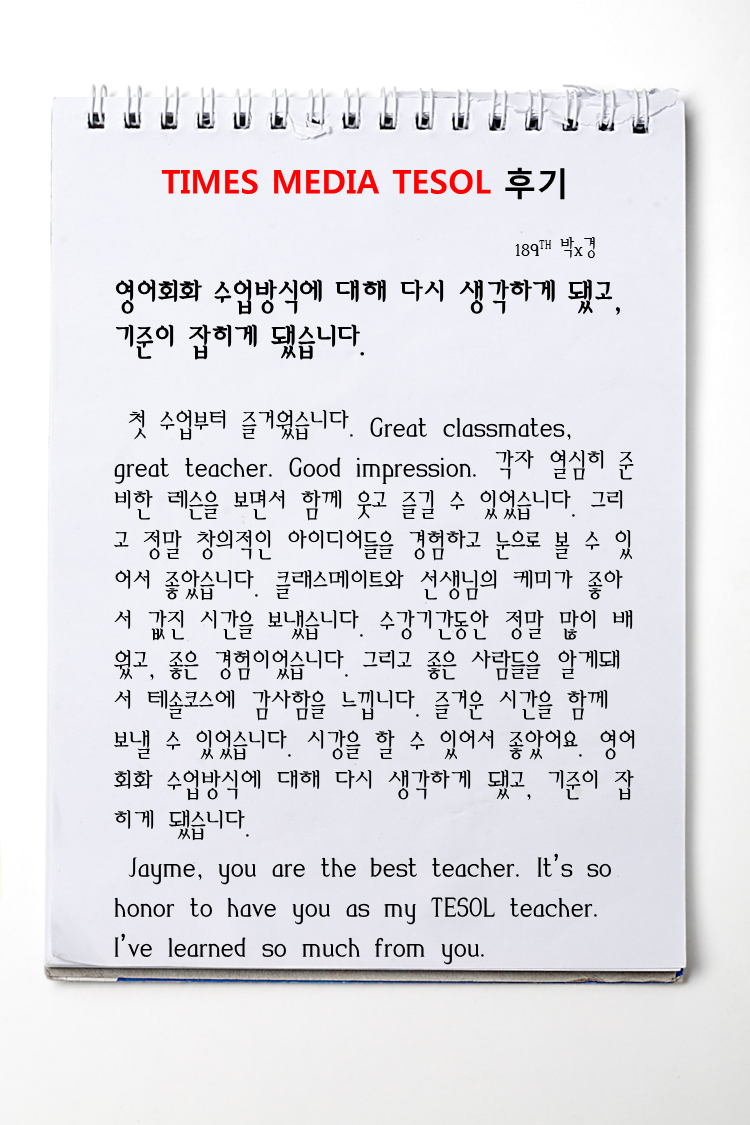 TIMES MEDIA TESOL 후기
189TH 박x경
영어회화 수업방식에 대해 다시 생각하게 됐고,
기준이 잡히게 됐습니다.
첫 수업부터 즐거웠습니다. Great classmates,
great teacher. Good impression. 각자 열심히 준
비한 레슨을 보면서 함께 웃고 즐길 수 있었습니다. 그리
고 정말 창의적인 아이디어들을 경험하고 눈으로 볼 수 있
어서 좋았습니다. 클래스메이트와 선생님의 케미가 좋아
서 값진 시간을 보냈습니다. 수강기간동안 정말 많이 배
웠고, 좋은 경험이었습니다. 그리고 좋은 사람들을 알게돼
서 테솔코스에 감사함을 느낍니다. 즐거운 시간을 함께
보낼 수 있었습니다. 시강을 할 수 있어서 좋았어요. 영어
회화 수업방식에 대해 다시 생각하게 됐고, 기준이 잡
히게 됐습니다.
Jayme, you are the best teacher. It's so
honor to have you as my TESOL teacher.
I've learned so much from you.